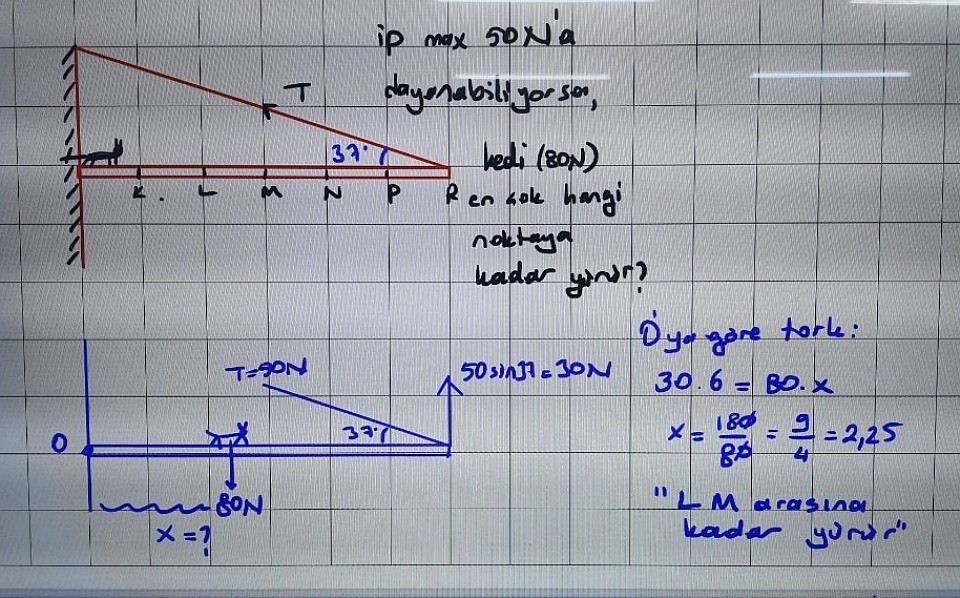 ip max 50N'a
dayanabiliyorsa,
T
37°
kedi (80N)
K L M N P R
en çok hangi
noktaya
kadar yürür?
O'ya göre tork:
T=50N
50 sin37 = 30N
30.6 = 80.x
x = 180/80 = 9/4 = 2,25
37°
O
80N
x = ?
"LM arasına
kadar yürür"